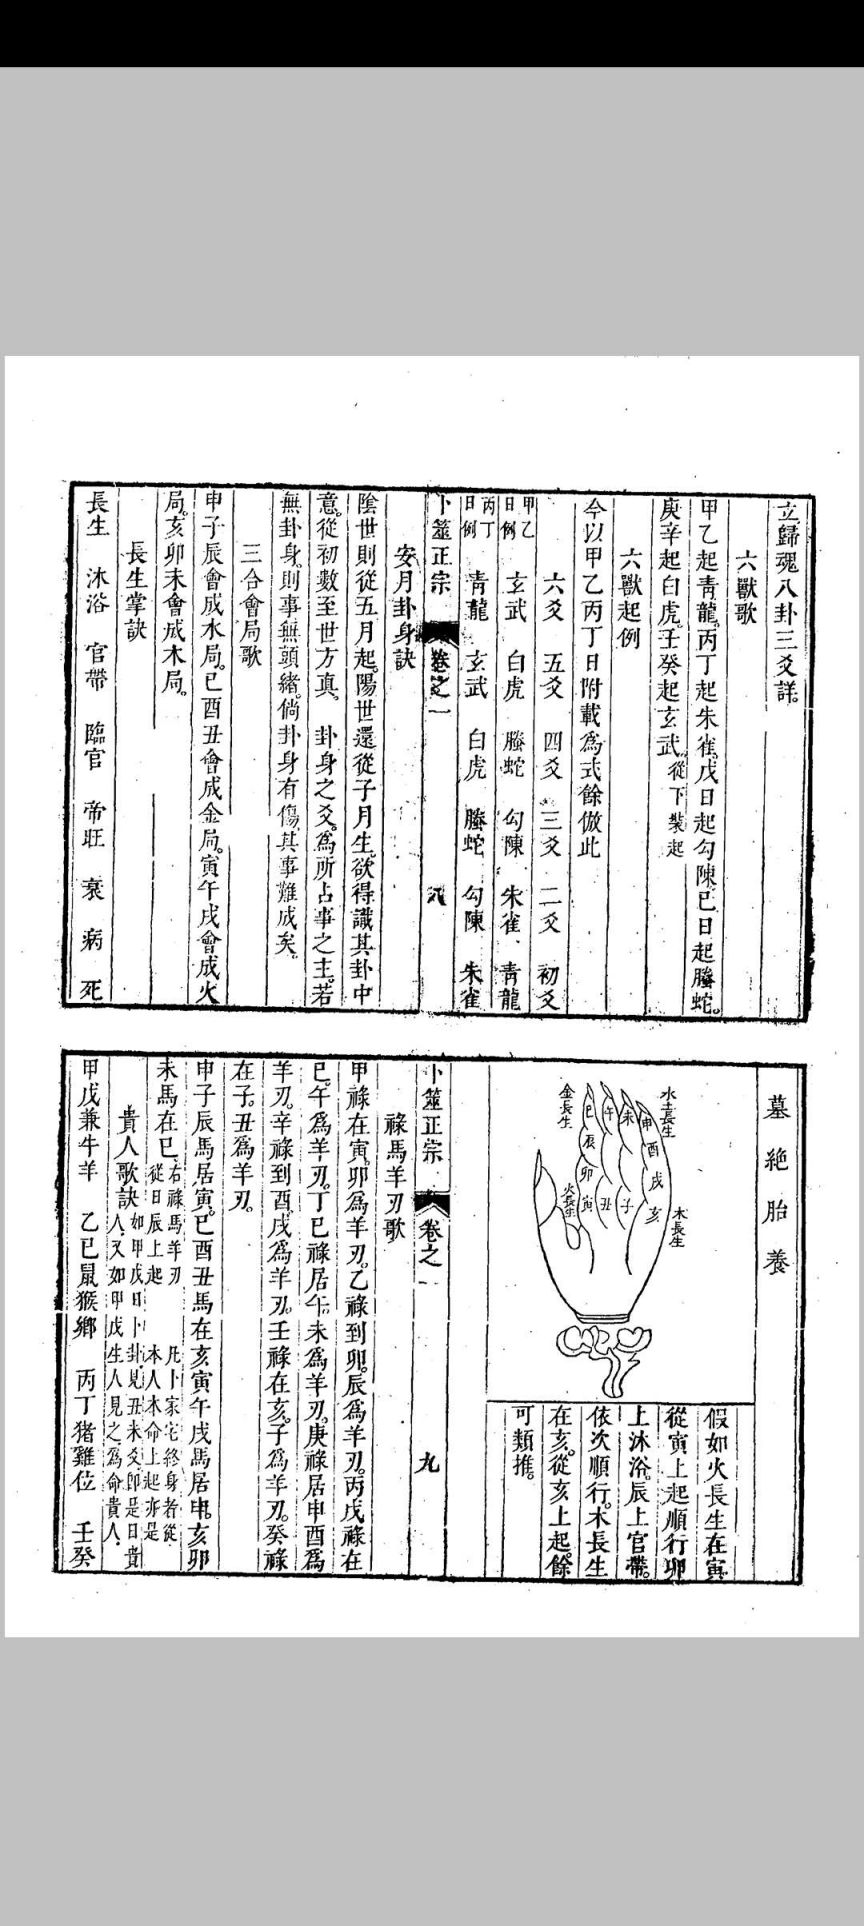 立歸魂八卦三爻詳。
六獸歌
甲乙起青龍。丙丁起朱雀。戊日起勾陳。已日起螣蛇。
庚辛起白虎。壬癸起玄武。從下裝起
六獸起例
今以甲乙丙丁日附載爲式餘倣此
六爻 五爻 四爻 三爻 二爻 初爻
甲乙日例 玄武 白虎 螣蛇 勾陳 朱雀 青龍
丙丁日例 青龍 玄武 白虎 螣蛇 勾陳 朱雀
卜筮正宗 卷之一 八
安月卦身訣
陰世則從五月起。陽世還從子月生。欲得識其卦中
意。從初數至世方真。 卦身之爻。爲所占事之主。若
無卦身。則事無頭緒。倘卦身有傷。其事難成矣。
三合會局歌
申子辰會成水局。巳酉丑會成金局。寅午戌會成火
局。亥卯未會成木局。
長生掌訣
長生 沐浴 官帶 臨官 帝旺 衰 病 死
墓 絶 胎 養
水土長生
木長生
金長生
火長生
申 酉 戌 亥
未 子
午 丑
巳 辰 卯 寅
假如火長生在寅
從寅上起順行卯
上沐浴。辰上官帶。
依次順行。木長生
在亥。從亥上起。餘
可類推。
卜筮正宗 卷之一 九
祿馬羊刃歌
甲祿在寅。卯爲羊刃。乙祿到卯。辰爲羊刃。丙戊祿在
巳。午爲羊刃。丁巳祿居午。未爲羊刃。庚祿居申酉爲
羊刃。辛祿到酉。戌爲羊刃。壬祿在亥。子爲羊刃。癸祿
在子。丑爲羊刃。
申子辰馬居寅。巳酉丑馬在亥寅午戌馬居申。亥卯
未馬在巳。右祿馬羊刃從日辰上起 凡卜家宅終身者從本人本命上起亦是
貴人歌訣 如甲戊日卜卦見丑未爻即是日貴人。又如甲戊生人見之爲命貴人。
甲戊兼牛羊 乙巳鼠猴鄉 丙丁猪雞位 壬癸